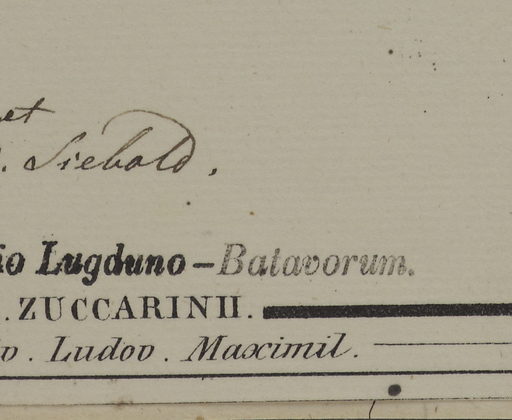 et
. Siebold.
io Lugduno-Batavorum.
. ZUCCARINII.
v. Ludov. Maximil.